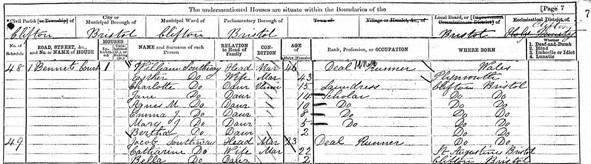 The undermentioned Houses are situate within the Boundaries of the
[Page 7
7
Civil Parish [or Township] of
City or Municipal Borough of
Municipal Ward of
Parliamentary Borough of
Town of
Local Board, or
Ecclesiastical District of
Clifton
Bristol
Clifton
Bristol
Bristol
No. of Schedule
ROAD, STREET, &c., and No. or NAME of HOUSE
HOUSES
NAME and Surname of each Person
RELATION to Head of Family
CONDITION
AGE
Rank, Profession, or OCCUPATION
WHERE BORN
1 Deaf-and-Dumb
2 Blind
3 Imbecile or Idiot
4 Lunatic
48 1 Bennetts Court 1 William Southway Head Mar 46 Deal Runner Wales
Esther Do Wife Mar 43 Plymouth
Charlotte Do Daur Unm 15 Laundress Clifton Bristol
Jane Do Daur 14 Scholar Do Do
Agnes M Do Daur 10 Do Do Do
Emma J Do Daur 8 Do Do Do
Mary J Do Daur 5 Do Do Do
Bertha Do Daur 2 Do Do
49 Jacob Southway Head Mar 23 Deal Runner Do Do
Catharine Do Wife Mar 22 St Augustines Bristol
Bella Do Daur 2 Clifton Bristol